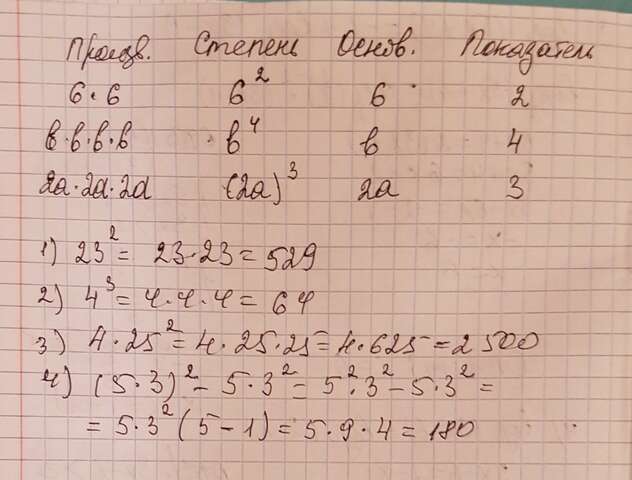 Произв. Степень Основ. Показатель
6·6 6² 6 2
в·в·в·в в⁴ в 4
2а·2а·2а (2а)³ 2а 3
1) 23² = 23·23 = 529
2) 4³ = 4·4·4 = 64
3) 4·25² = 4·25·25 = 4·625 = 2500
4) (5·3)² - 5·3² = 5²·3² - 5·3² =
= 5·3² (5-1) = 5·9·4 = 180